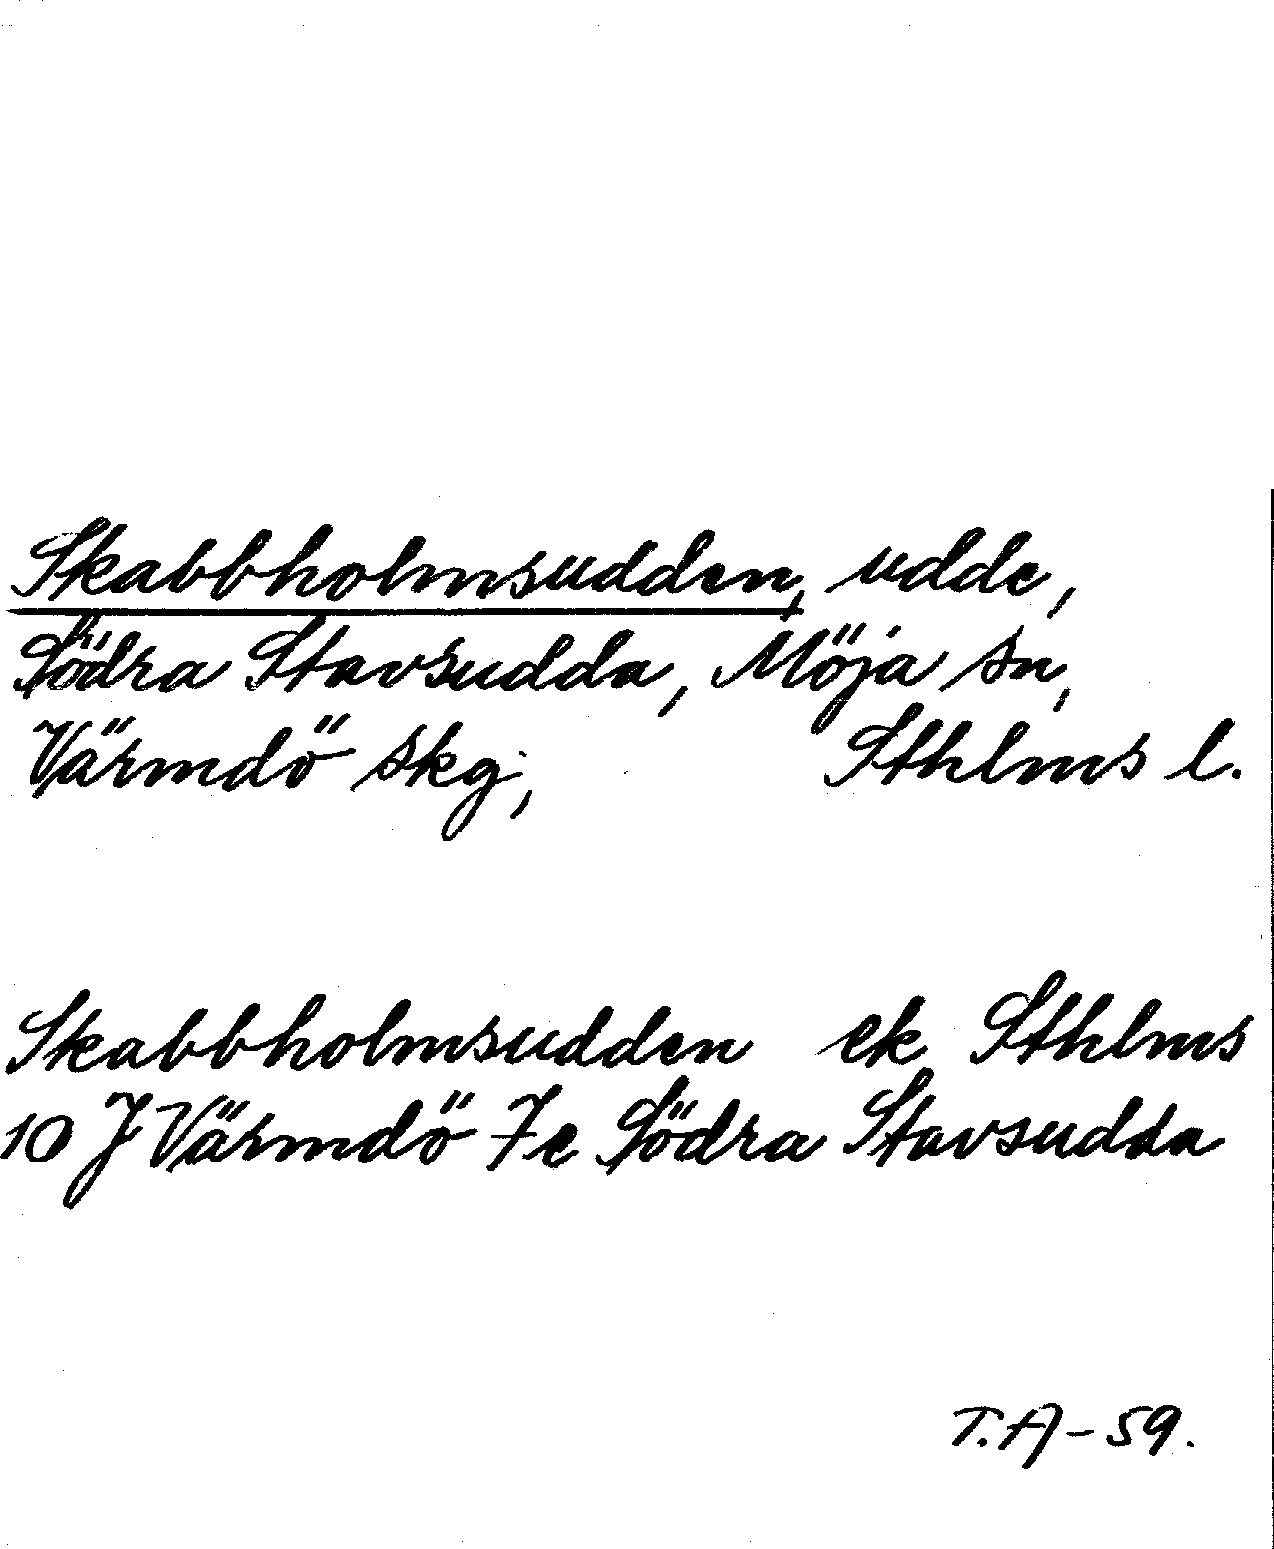 Skabbholmsudden, udde,
Södra Stavsudda, Möja sn,
Värmdö skg, Sthlms l.
Skabbholmsudden ek Sthlms
10 J Värmdö 7e Södra Stavsudda
T.A-59.